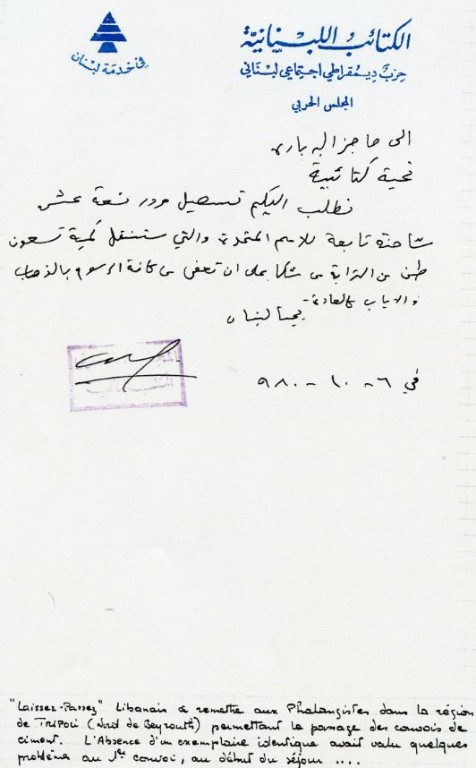 الكتائب اللبنانية
حزب ديمقراطي اجتماعي لبناني
المجلس الحربي
في خدمة لبنان
الى حاجز البربارة
تحية كتائبية
نطلب اليكم تسهيل مرور تسعة عشر
شاحنة تابعة للامم المتحدة والتي ستنقل كمية تسعون
طن من الترابة من شكا على ان تعفى من كافة الرسوم بالذهاب
والاياب كالعادة.
يحيا لبنان
في ٦ - ١٠ - ٩٨٠
"Laissez-Passez" Libanais à remettre aux Phalangistes dans la région
de Tripoli (Nord de Beyrouth) permettant le passage des convois de
ciment. L'Absence d'un exemplaire identique avait valu quelques
problèmes au 1er convoi, au début du séjour ....